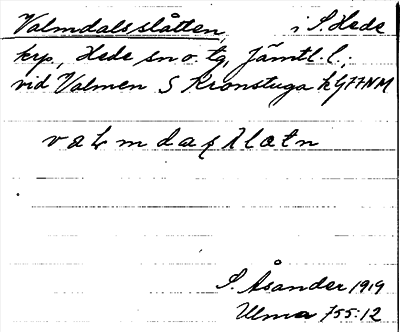 Valmdalsslåtten, i S. Hede
krp., Hede sn o. tg, Jämtl. l.;
vid Valmen S Kronstuga
valmdaʃlɔtn
I. Åsander 1919
Ulma 755:12